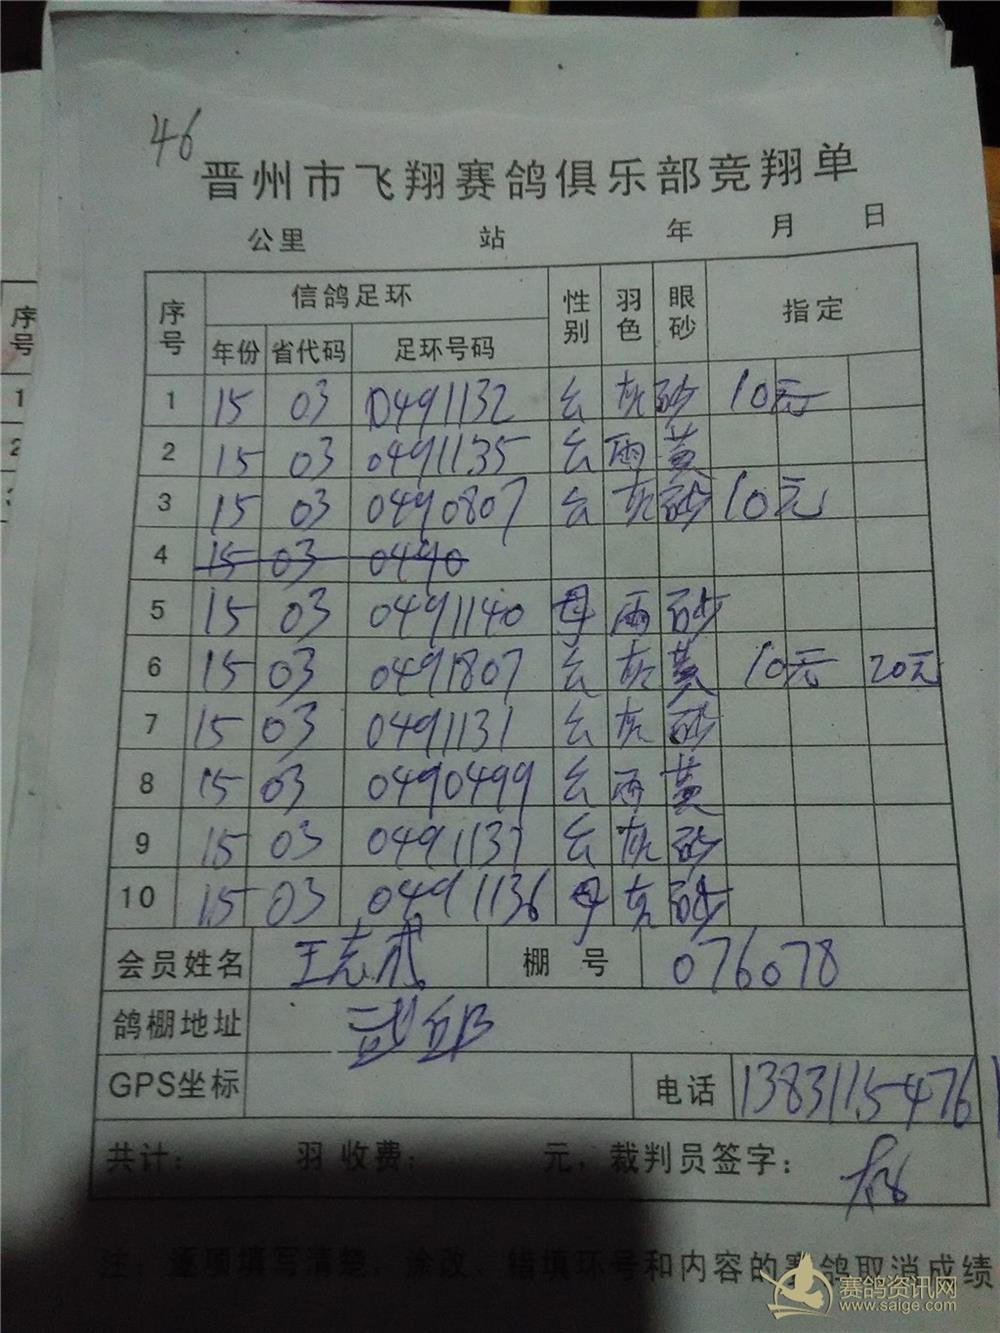 46
晋州市飞翔赛鸽俱乐部竞翔单
公里 站 年 月 日
序号 信鸽足环 性别 羽色 眼砂 指定
年份 省代码 足环号码
1 15 03 0491132 公 灰 砂 10元
2 15 03 0491135 公 雨 黄
3 15 03 0490807 公 灰 砂 10元
4 15 03 0490
5 15 03 0491140 母 雨 砂
6 15 03 0491807 公 灰 黄 10元 20元
7 15 03 0491131 公 灰 砂
8 15 03 0490499 公 雨 黄
9 15 03 0491137 公 灰 砂
10 15 03 0491136 母 灰 砂
会员姓名 王志武 棚号 076078
鸽棚地址 武邱
GPS坐标 电话 13831154761
共计： 羽 收费： 元，裁判员签字：
注：逐项填写清楚，涂改、错填环号和内容的赛鸽取消成绩
赛鸽资讯网
www.saige.com
序号
1
2
3